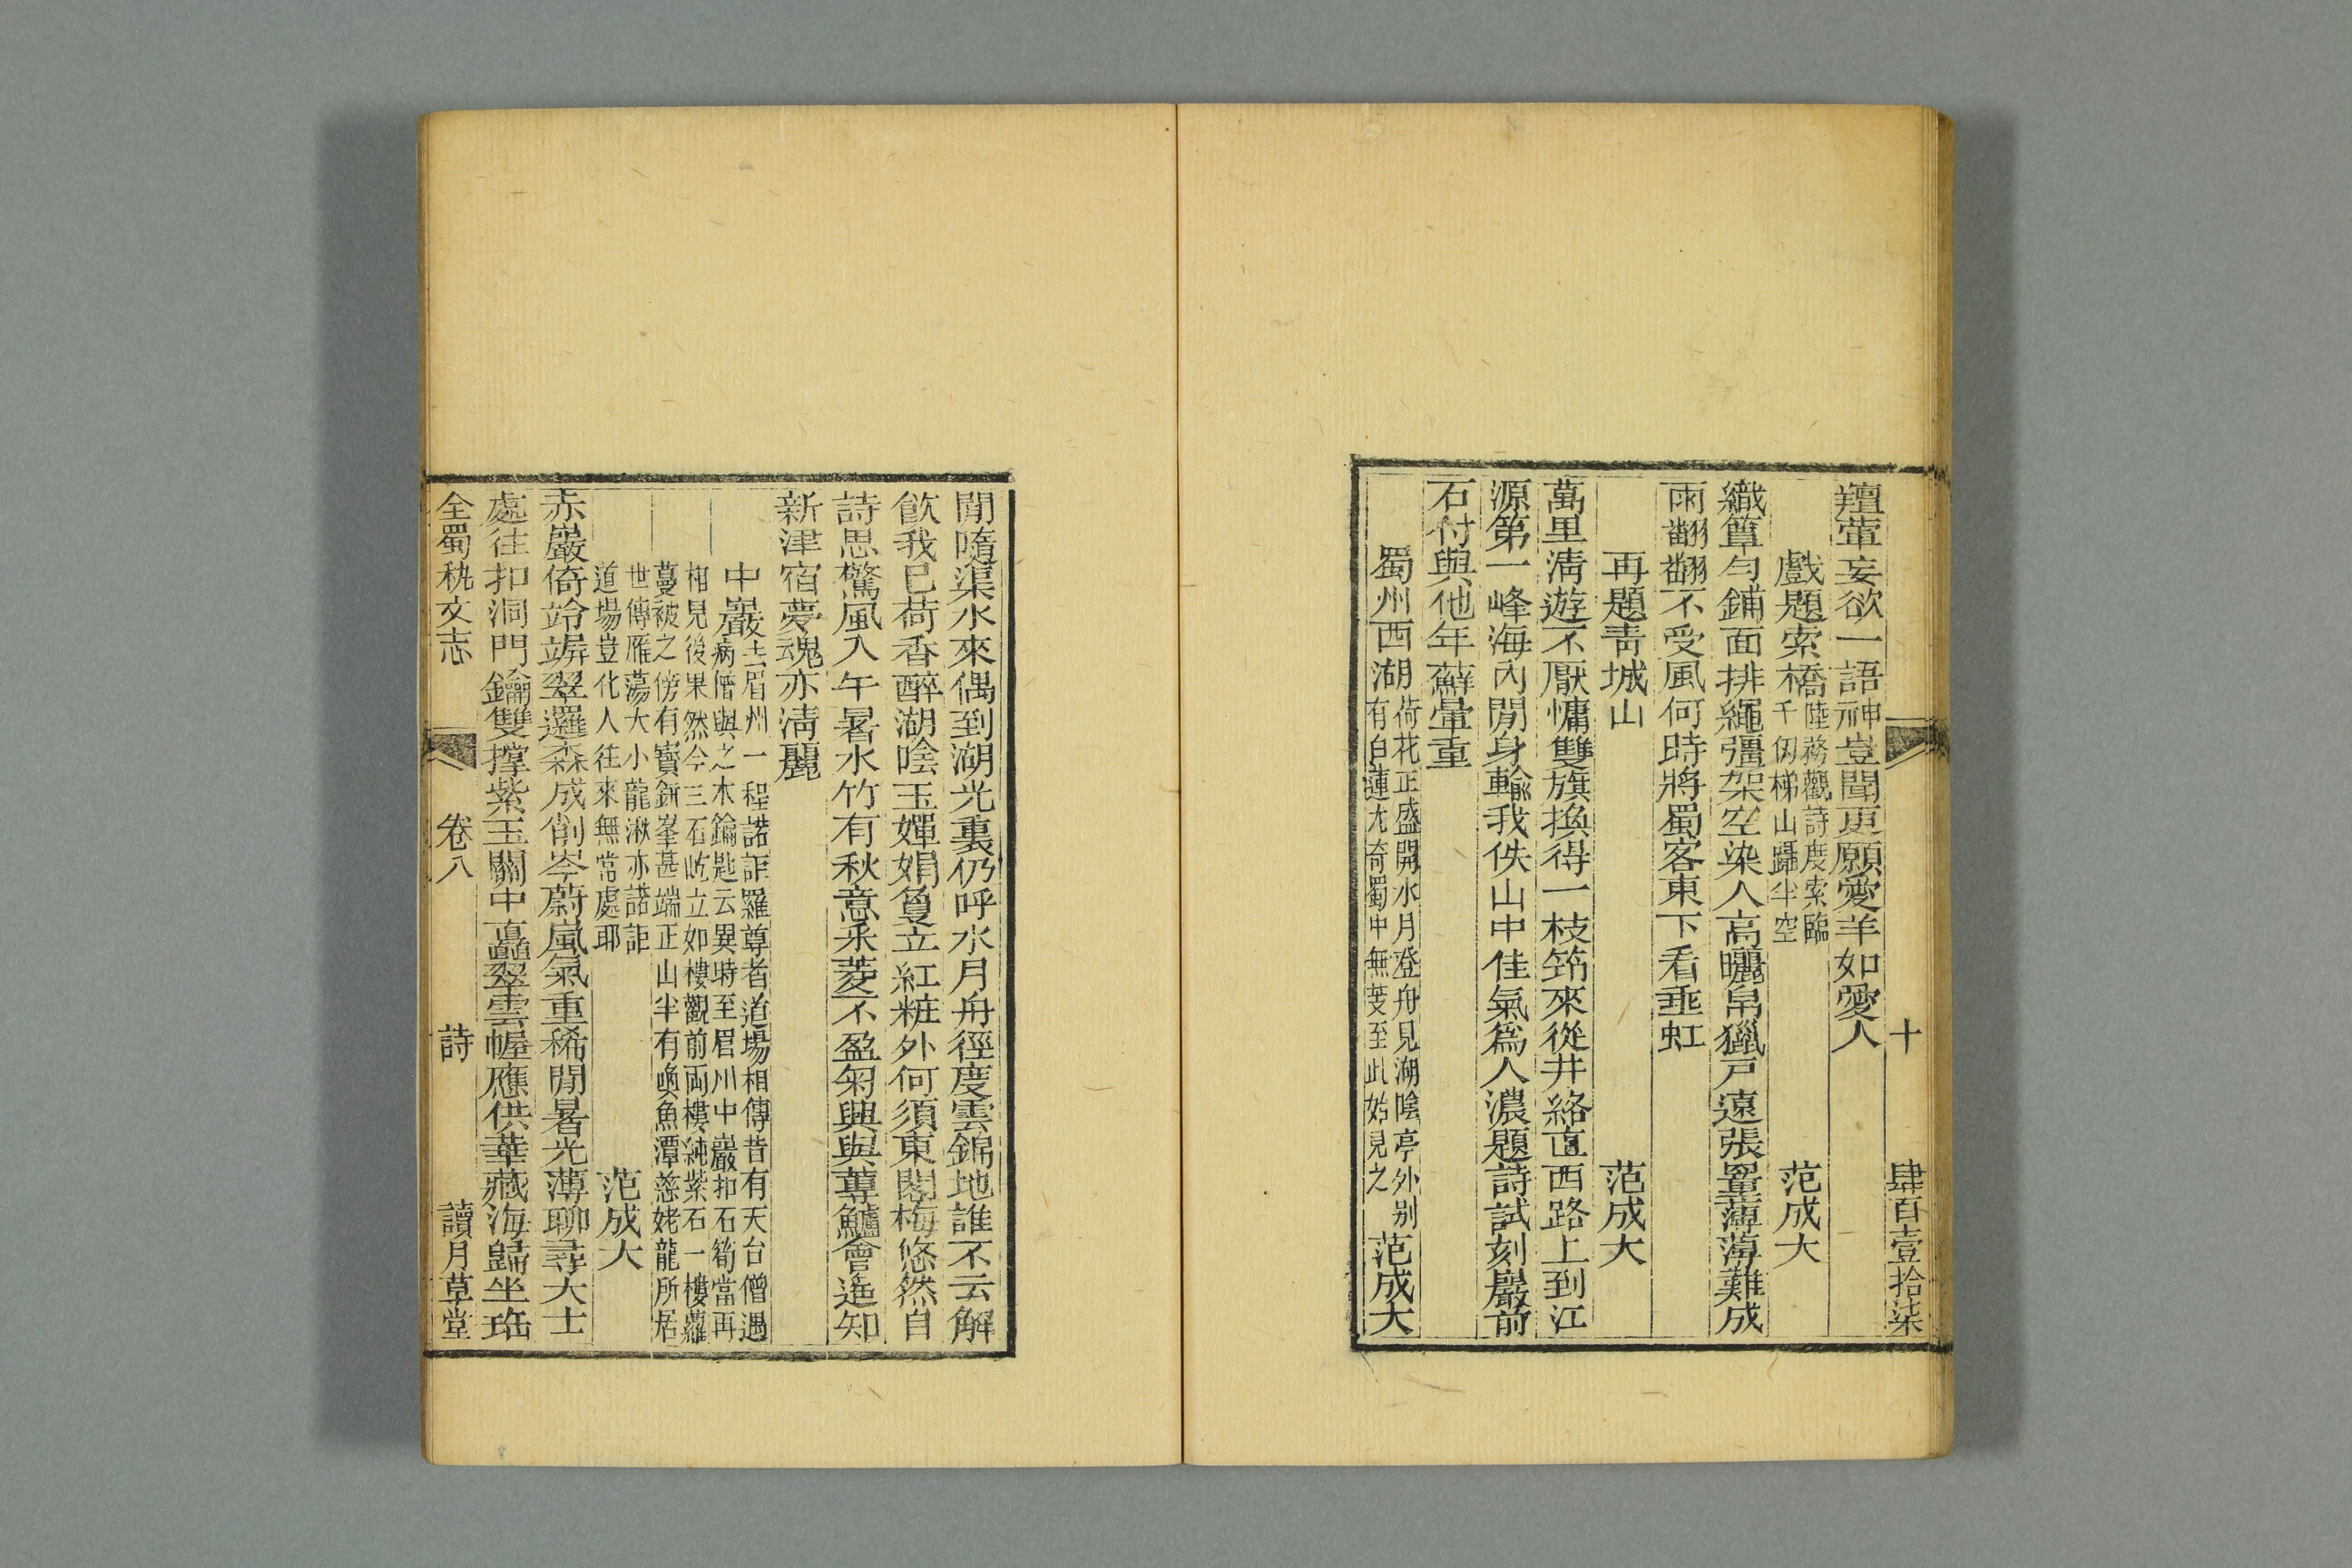 十　肆百壹拾柒
羶葷妄欲一語神豈聞更願愛羊如愛人
戲題索橋陸務觀詩度索臨千仞梯山躡半空　范成大
織簟勻鋪面排繩彊架空染人高曬帛獵戶遠張罿薄薄難成
雨翻翻不受風何時將蜀客東下看垂虹
再題靑城山　范成大
萬里淸遊不厭慵雙旗換得一枝筇來從井絡直西路上到江
源第一峰海內閒身輸我佚山中佳氣爲人濃題詩試刻巖前
石付與他年蘚暈重
蜀州西湖荷花正盛開水月登舟見湖陰亭外別有白蓮尤奇蜀中無芰至此始見之　范成大
閒隨渠水來偶到湖光裏仍呼水月舟徑度雲錦地誰不云解
飮我已荷香醉湖陰玉嬋娟夐立紅粧外何須東閣梅悠然自
詩思驚風入午暑水竹有秋意釆菱不盈匊興與蓴鱸會遙知
新津宿夢魂亦淸麗
中巖去眉州一程諾詎羅尊者道場相傳昔有天台僧遇病僧與之木鑰匙云異時至眉州中巖扣石筍當再
相見後果然今三石屹立如樓觀前両樓純紫石一樓蘿蔓被之傍有寶缾峯甚端正山半有喚魚潭慈姥龍所居
世傳雁蕩大小龍湫亦諾詎道場豈化人往來無常處耶　范成大
赤巖倚竛竮翠邐森成削岑蔚嵐氣重稀閒暑光薄聊尋大士
處往扣洞門鑰雙撑紫玉關中矗翠雲幄應供華藏海歸坐珤
全蜀秇文志　卷八　詩　讀月草堂